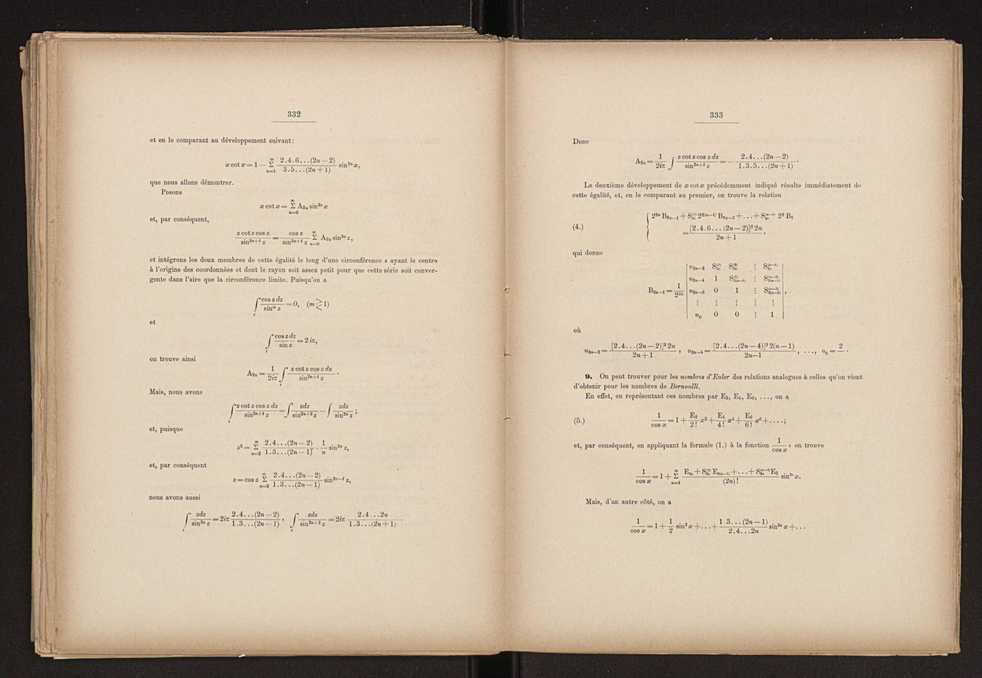 332
et en le comparant au développement suivant:
x cot x = 1 − Σ_{n=1}^{∞} 2.4.6...(2n−2) / 3.5...(2n+1) sin²ⁿ x,
que nous allons démontrer.
Posons
x cot x = Σ_{n=0}^{∞} A₂ₙ sin²ⁿ x
et, par conséquent,
z cot z cos z / sin²ⁿ⁺¹ z = cos z / sin²ⁿ⁺¹ z Σ_{n=0}^{∞} A₂ₙ sin²ⁿ z,
et intégrons les deux membres de cette égalité le long d'une circonférence s ayant le centre
à l'origine des coordonnées et dont le rayon soit assez petit pour que cette série soit conver-
gente dans l'aire que la circonférence limite. Puisqu'on a
∫ₛ cos z dz / sinᵐ z = 0, (m ≷ 1)
et
∫ₛ cos z dz / sin z = 2iπ,
on trouve ainsi
A₂ₙ = 1 / 2iπ ∫ₛ z cot z cos z dz / sin²ⁿ⁺¹ z .
Mais, nous avons
∫ₛ z cot z cos z dz / sin²ⁿ⁺¹ z = ∫ₛ zdz / sin²ⁿ⁺² z − ∫ₛ zdz / sin²ⁿ z ;
et, puisque
z² = Σ 2.4...(2n−2) / 1.3...(2n−1) · 1/n sin²ⁿ z,
et, par conséquent
z = cos z Σ 2.4...(2n−2) / 1.3...(2n−1) sin²ⁿ⁻¹ z,
nous avons aussi
∫ₛ zdz / sin²ⁿ z = 2iπ 2.4...(2n−2) / 1.3...(2n−1) , ∫ₛ zdz / sin²ⁿ⁺² z = 2iπ 2.4...2n / 1.3...(2n+1) .
333
Donc
A₂ₙ = 1 / 2iπ ∫ z cot z cos z dz / sin²ⁿ⁺¹ z = − 2.4...(2n−2) / 1.3.5...(2n+1) .
Le deuxième développement de x cot x précédemment indiqué résulte immédiatement de
cette égalité, et, en le comparant au premier, on trouve la relation
(4.)
= [2.4.6...(2n−2)]² 2n / 2n+1 ,
qui donne
où
u₂ₙ₋₂ = [2.4...(2n−2)]² 2n / 2n+1 , u₂ₙ₋₄ = [2.4...(2n−4)]² 2(n−1) / 2n−1 , ...,
9. On peut trouver pour les nombres d'Euler des relations analogues à celles qu'on vient
d'obtenir pour les nombres de Bernoulli.
En effet, en représentant ces nombres par E₂, E₄, E₆, ..., on a
(5.) 1 / cos x = 1 + E₂/2! x² + E₄/4! x⁴ + E₆/6! x⁶ + ....;
et, par conséquent, en appliquant la formule (1.) à la fonction 1 / cos x , on trouve
Mais, d'un autre côté, on a
1 / cos x = 1 + 1/2 sin² x + ... + 1.3...(2n−1) / 2.4...2n sin²ⁿ x + ...